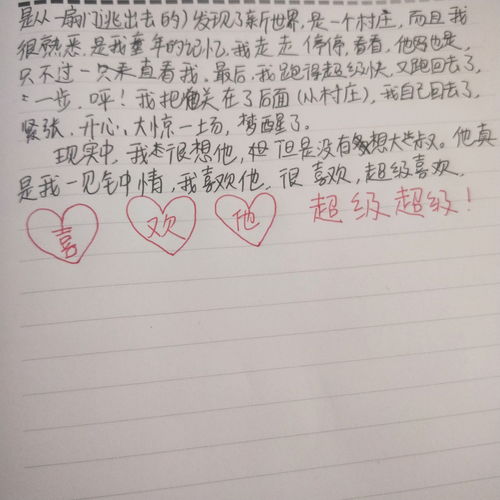 是从一扇门逃出去的)发现了新世界,是一个村庄,而且我
很熟悉,是我童年的记忆,我走走停停,看看,他也是,
只不过一只来直看我,最后,我跑得超级快,又跑回去了,
一步,呼!我把他关在了后面(从村庄),我自己回去了,
紧张、开心、大惊一场,梦醒了。
现实中,我也很想他,但是没有多想大些叔。他真
是我一见钟情,我喜欢他,很喜欢,超级喜欢,
喜 欢 他 超级超级!